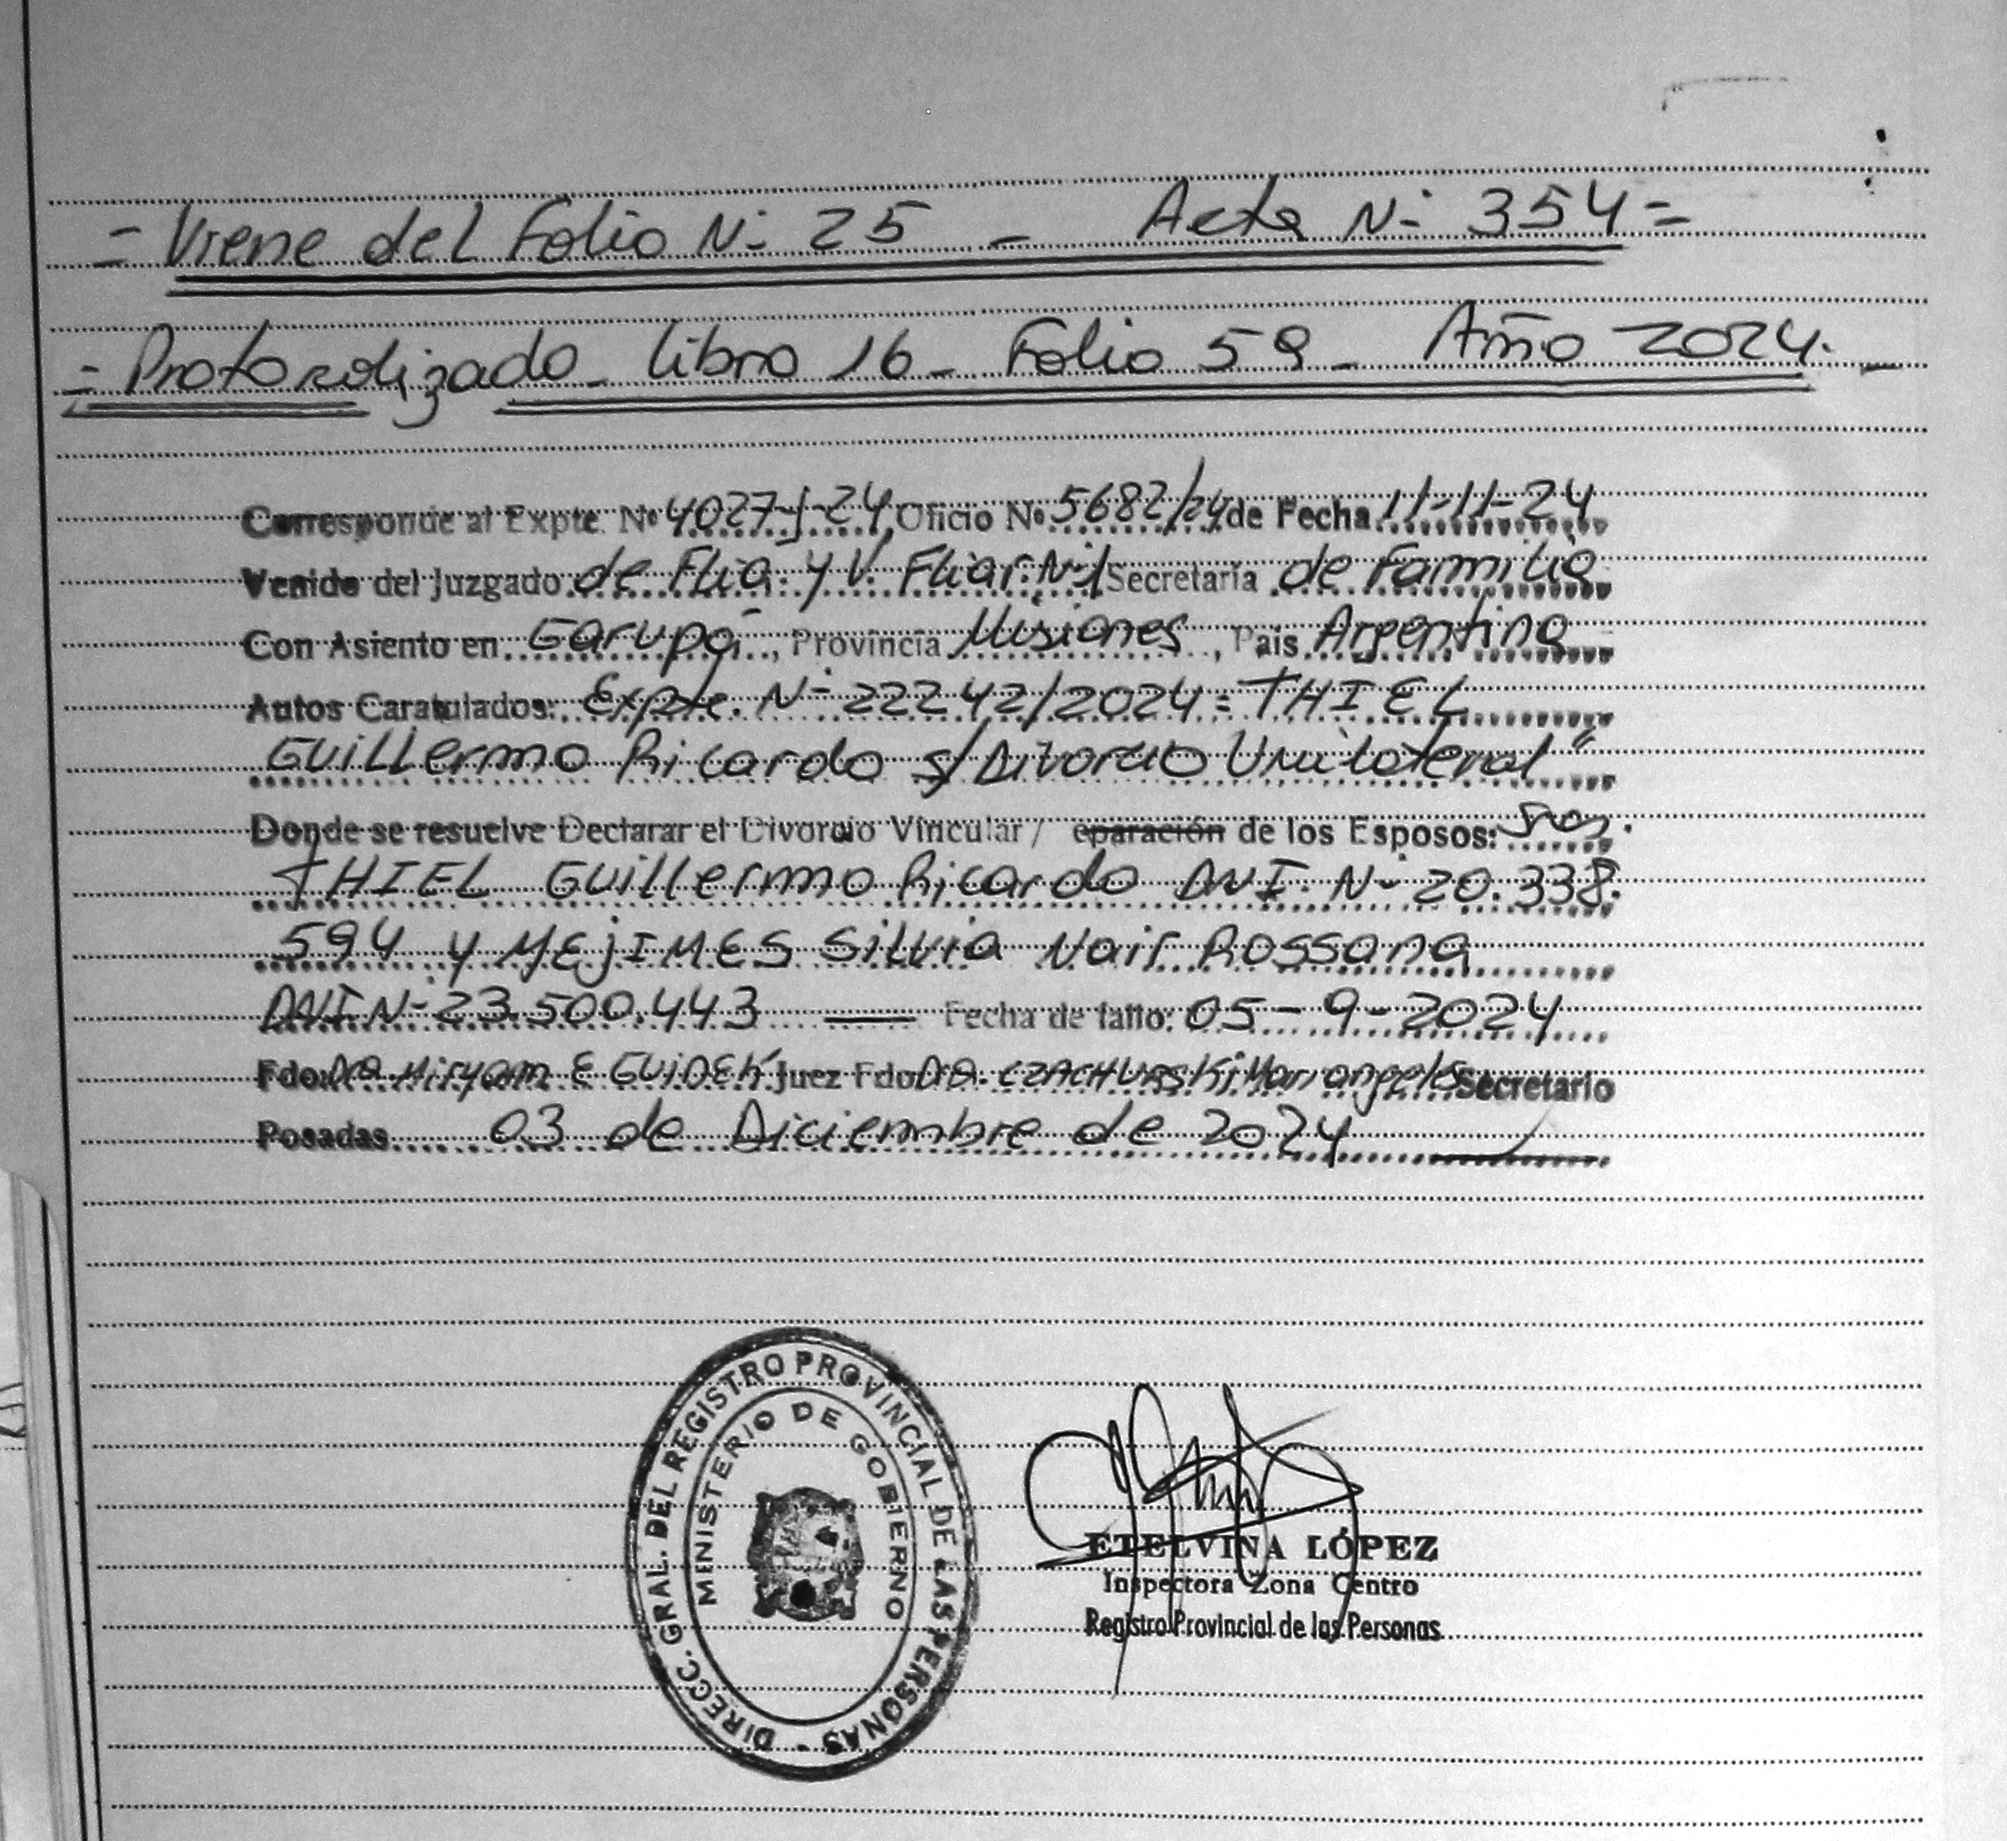 = Viene del Folio N- 25 - Acta N- 354 =
= Protocolizado - Libro 16 - Folio 59 - Año 2024. -
Corresponde al Expte. Nº 4027-J-24, Oficio Nº 5682/24 de Fecha 11-11-24
Venido del Juzgado de Flia. y V. Fliar. N-1 Secretaría de Familia
Con Asiento en Garupá, Provincia Misiones, País Argentina
Autos Caratulados: Expte. N- 22242/2024 = THIEL
Guillermo Ricardo s/Divorcio Unilateral"
Donde se resuelve Declarar el Divorcio Vincular / eparación de los Esposos: Sres.
THIEL Guillermo Ricardo DNI. N- 20.338.
594 y MEjIMES Silvia Nair Rossana
DNI N- 23.500.443 — Fecha de fallo: 05-9-2024
Fdo: Dra Miryam E Juez Fdo Dra. Mari angeles Secretario
Posadas 03 de Diciembre de 2024
DIRECC. GRAL. DEL REGISTRO PROVINCIAL DE LAS PERSONAS -
MINISTERIO DE GOBIERNO
ETELVINA LÓPEZ
Inspectora Zona Centro
Registro Provincial de las Personas